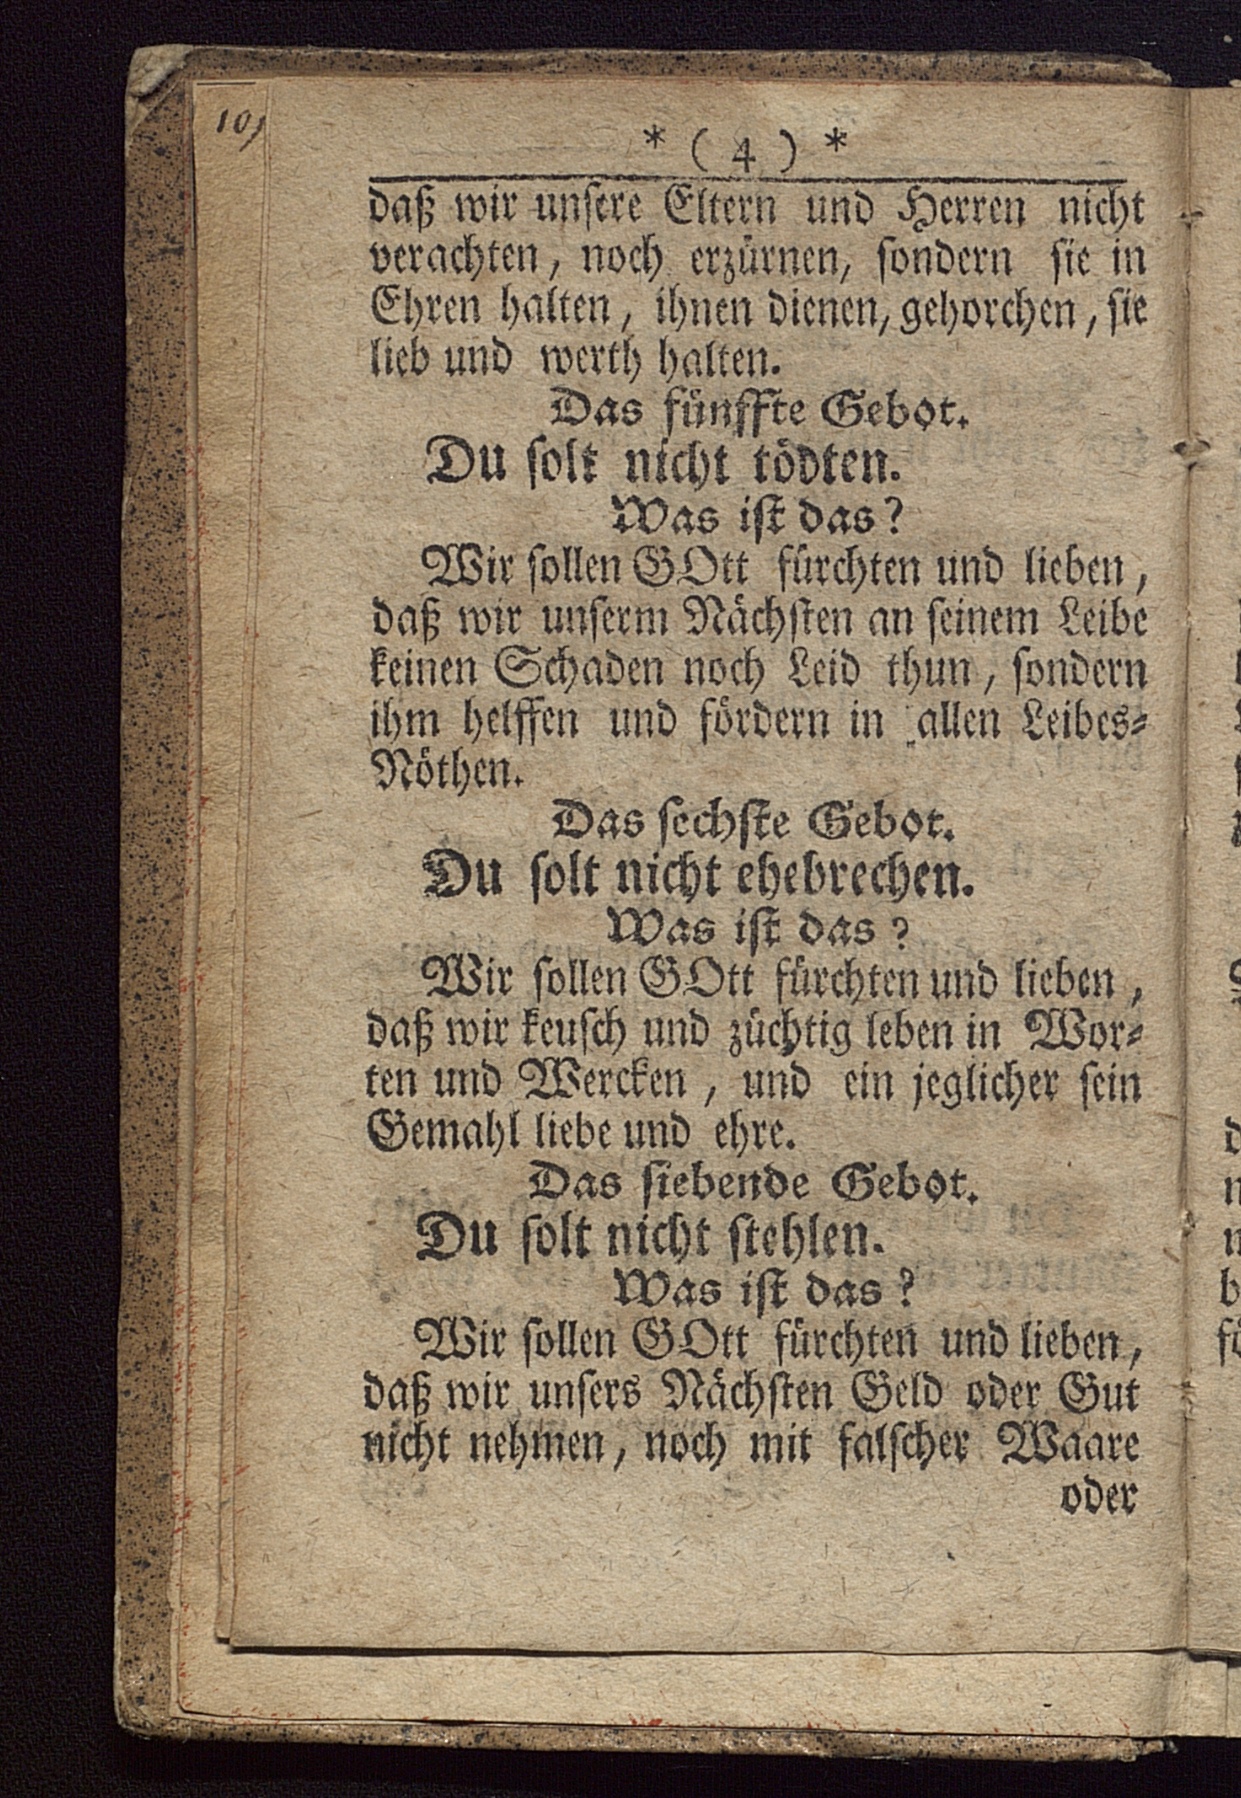 101
* ( 4 ) *
daß wir unsere Eltern und Herren nicht
verachten, noch erzürnen, sondern sie in
Ehren halten, ihnen dienen, gehorchen, sie
lieb und werth halten.
Das fünffte Gebot.
Du solt nicht tödten.
Was ist das?
Wir sollen GOtt fürchten und lieben,
daß wir unserm Nächsten an seinem Leibe
keinen Schaden noch Leid thun, sondern
ihm helffen und fördern in allen Leibes-
Nöthen.
Das sechste Gebot.
Du solt nicht ehebrechen.
Was ist das?
Wir sollen GOtt fürchten und lieben,
daß wir keusch und züchtig leben in Wor-
ten und Wercken, und ein jeglicher sein
Gemahl liebe und ehre.
Das siebende Gebot.
Du solt nicht stehlen.
Was ist das?
Wir sollen GOtt fürchten und lieben,
daß wir unsers Nächsten Geld oder Gut
nicht nehmen, noch mit falscher Waare
oder